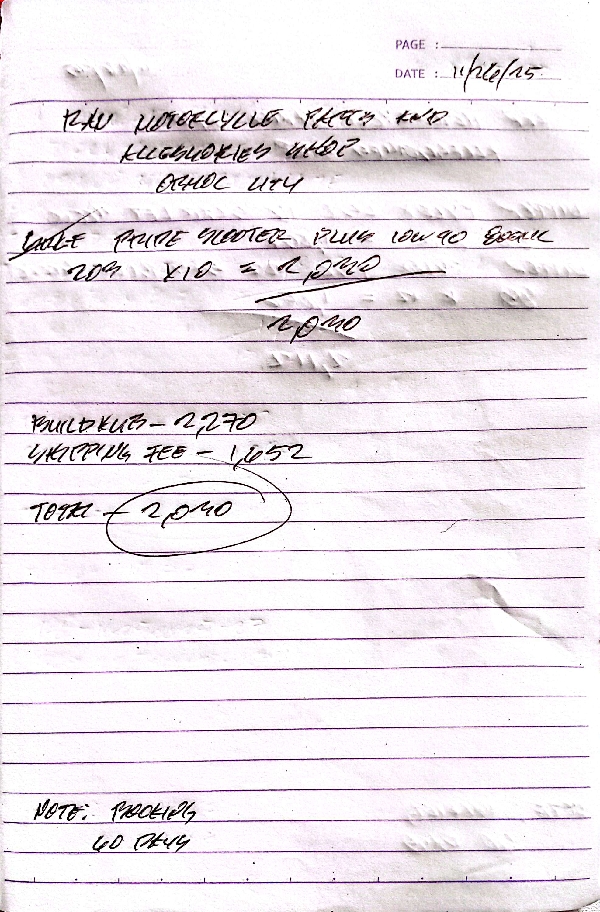 PAGE :
DATE : 11/26/25
RAV MOTORCYCLE PARTS AND
ACCESSORIES SHOP
ORMOC CITY
PRIDE SCOOTER PLUS 10W40 800ML
203 X10 = 2,030
2,030
BUILDKUB - 2,270
SHIPPING FEE - 1,652
TOTAL - 2,030
NOTE: BOOKING
60 DAYS